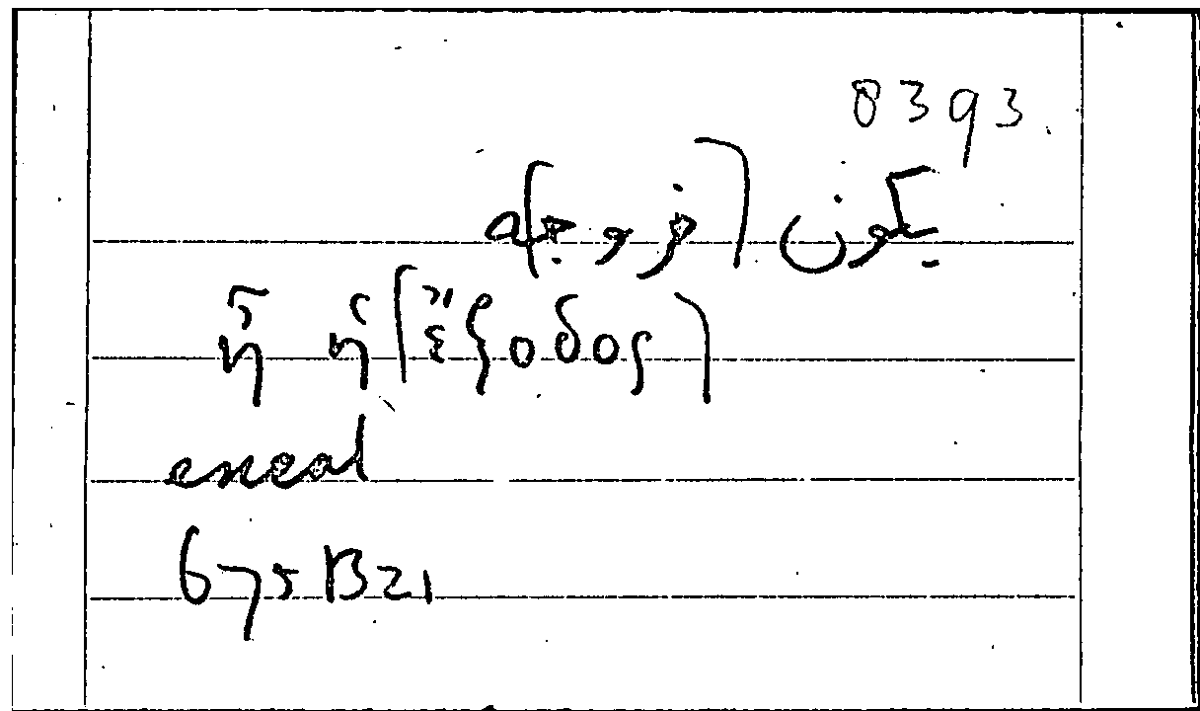 8393
يكون [خروجه]
ἦ ἡ [ἔξοδος]
675B21